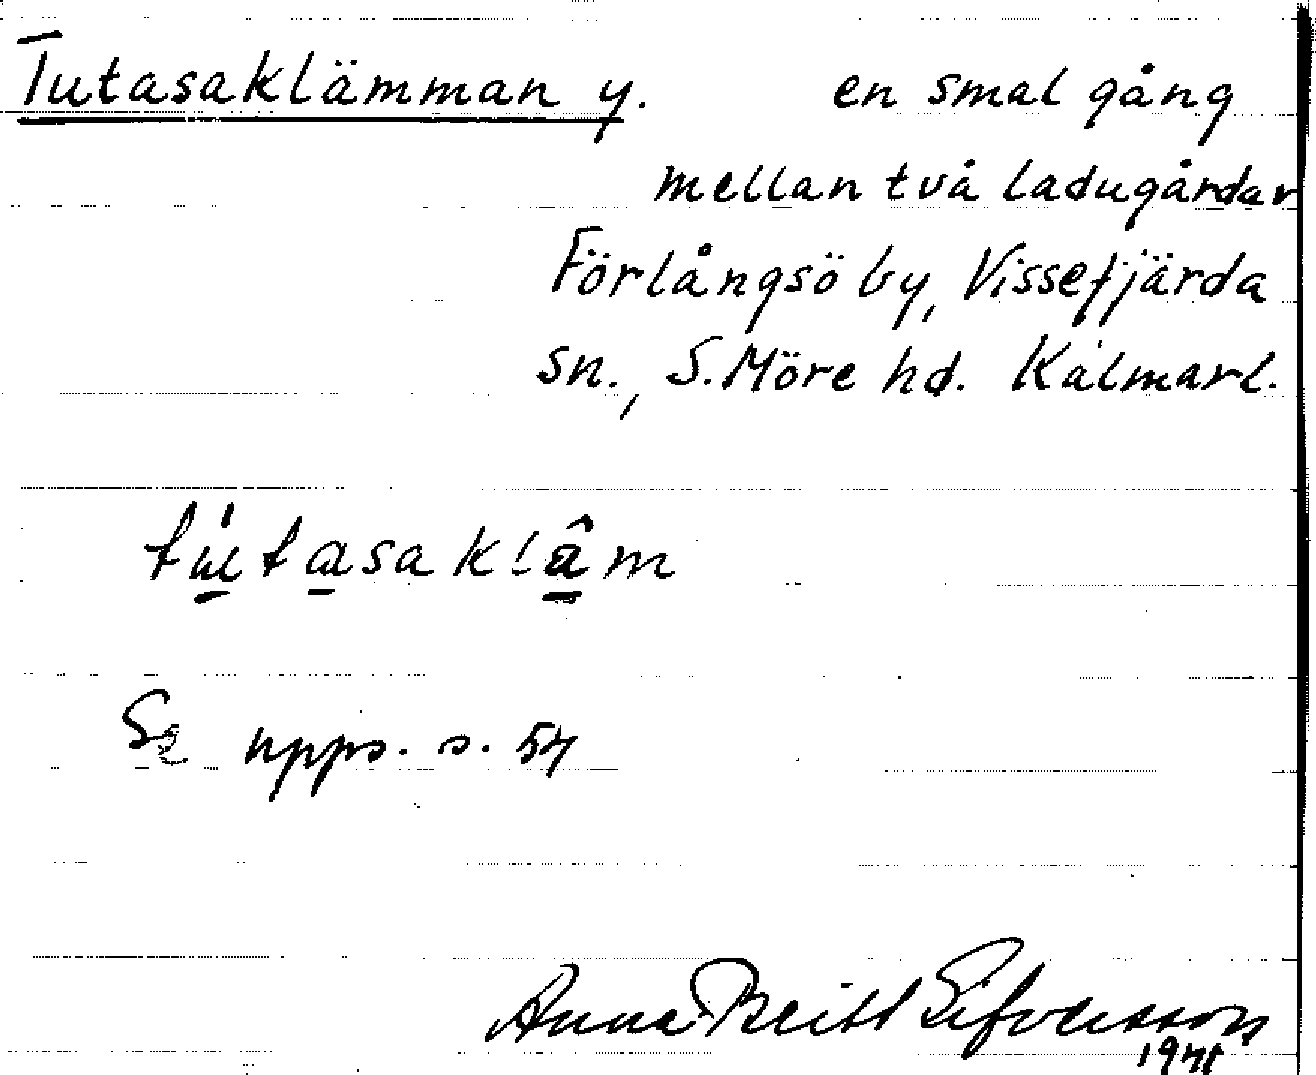 Tutasaklämman y. en smal gång
mellan två ladugårdar
Förlångsö by, Vissefjärda
sn., S. Möre hd. Kalmarl.
tutasaklâm
Se upps. s. 54
Anna-Britt Sifversson